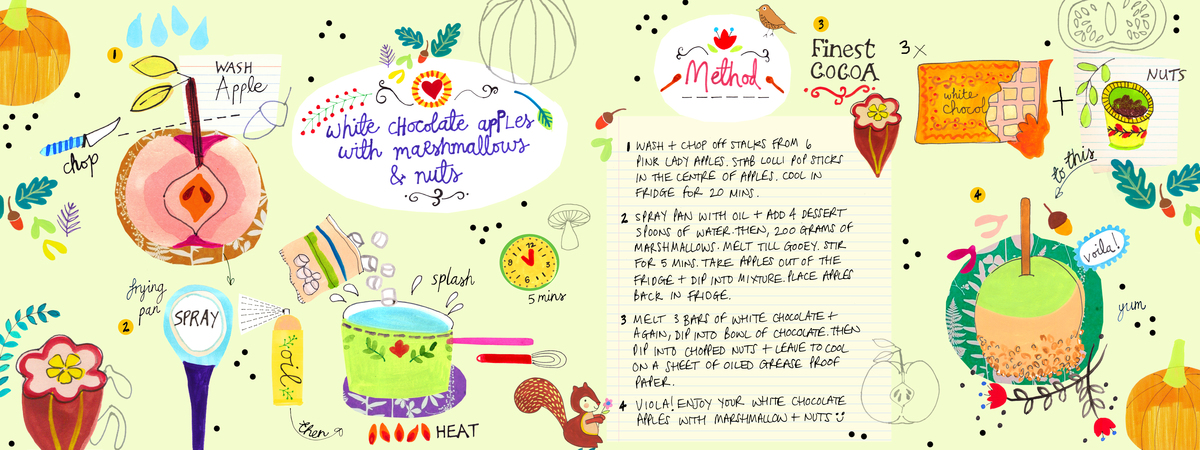 1
WASH
Apple
chop
white cHocolate apPLes
with marshmallows
& nuts
frying
pan
2
SPRAY
oil
then
splash
12
3
6
9
5 mins
HEAT
Method
1 WASH + CHOP OFF STALCKS FROM 6
PINK LADY APPLES. STAB LOLLI POP STICKS
IN THE CENTRE OF APPLES. COOL IN
FRIDGE FOR 20 MINS.
2 SPRAY PAN WITH OIL + ADD 4 DESSERT
SPOONS OF WATER. THEN, 200 GRAMS OF
MARSHMALLOWS. MELT TILL GOOEY. STIR
FOR 5 MINS. TAKE APPLES OUT OF THE
FRIDGE + DIP INTO MIXTURE. PLACE APPLES
BACK IN FRIDGE.
3 MELT 3 BARS OF WHITE CHOCOLATE +
AGAIN, DIP INTO BOWL OF CHOCOLATE. THEN
DIP INTO CHOPPED NUTS + LEAVE TO COOL
ON A SHEET OF OILED GREASE PROOF
PAPER.
4 VIOLA! ENJOY YOUR WHITE CHOCOLATE
APPLES WITH MARSHMALLOW + NUTS
3
Finest
COCOA
3 x
white
chocol
+
NUTS
to this
4
voila!
yum